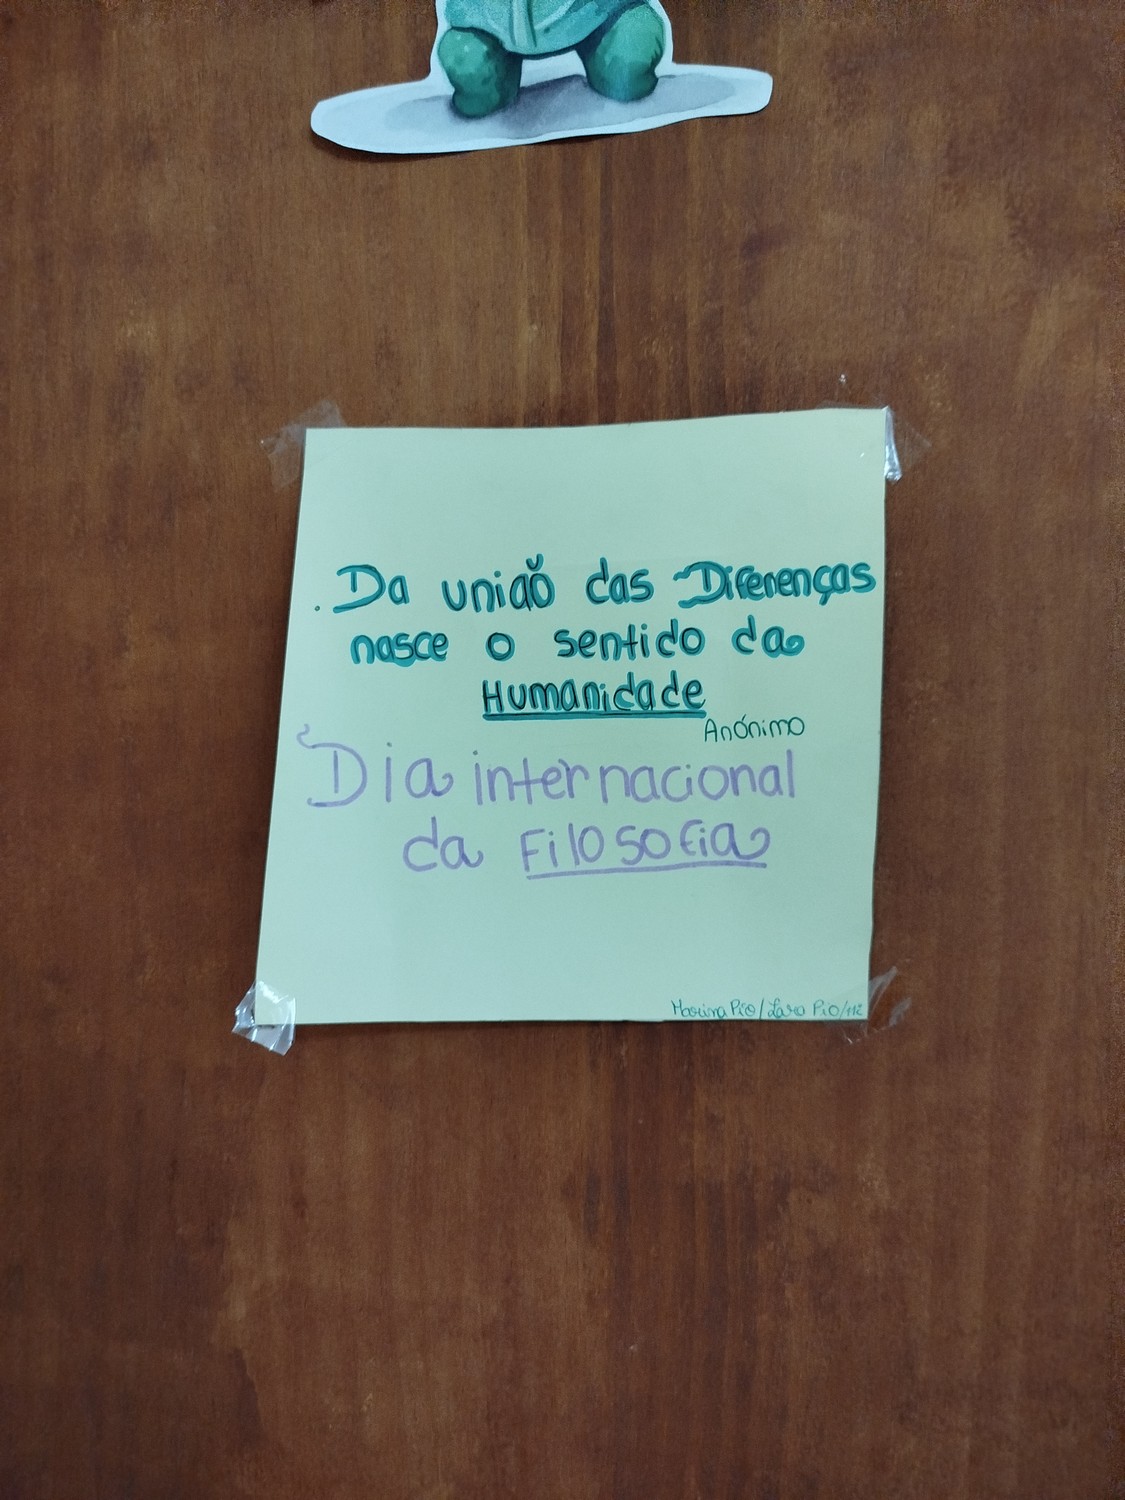 . Da união das Diferenças
nasce o sentido da
Humanidade
Anónimo
Dia internacional
da Filosofia
Marina Pio/Lara Pio/112